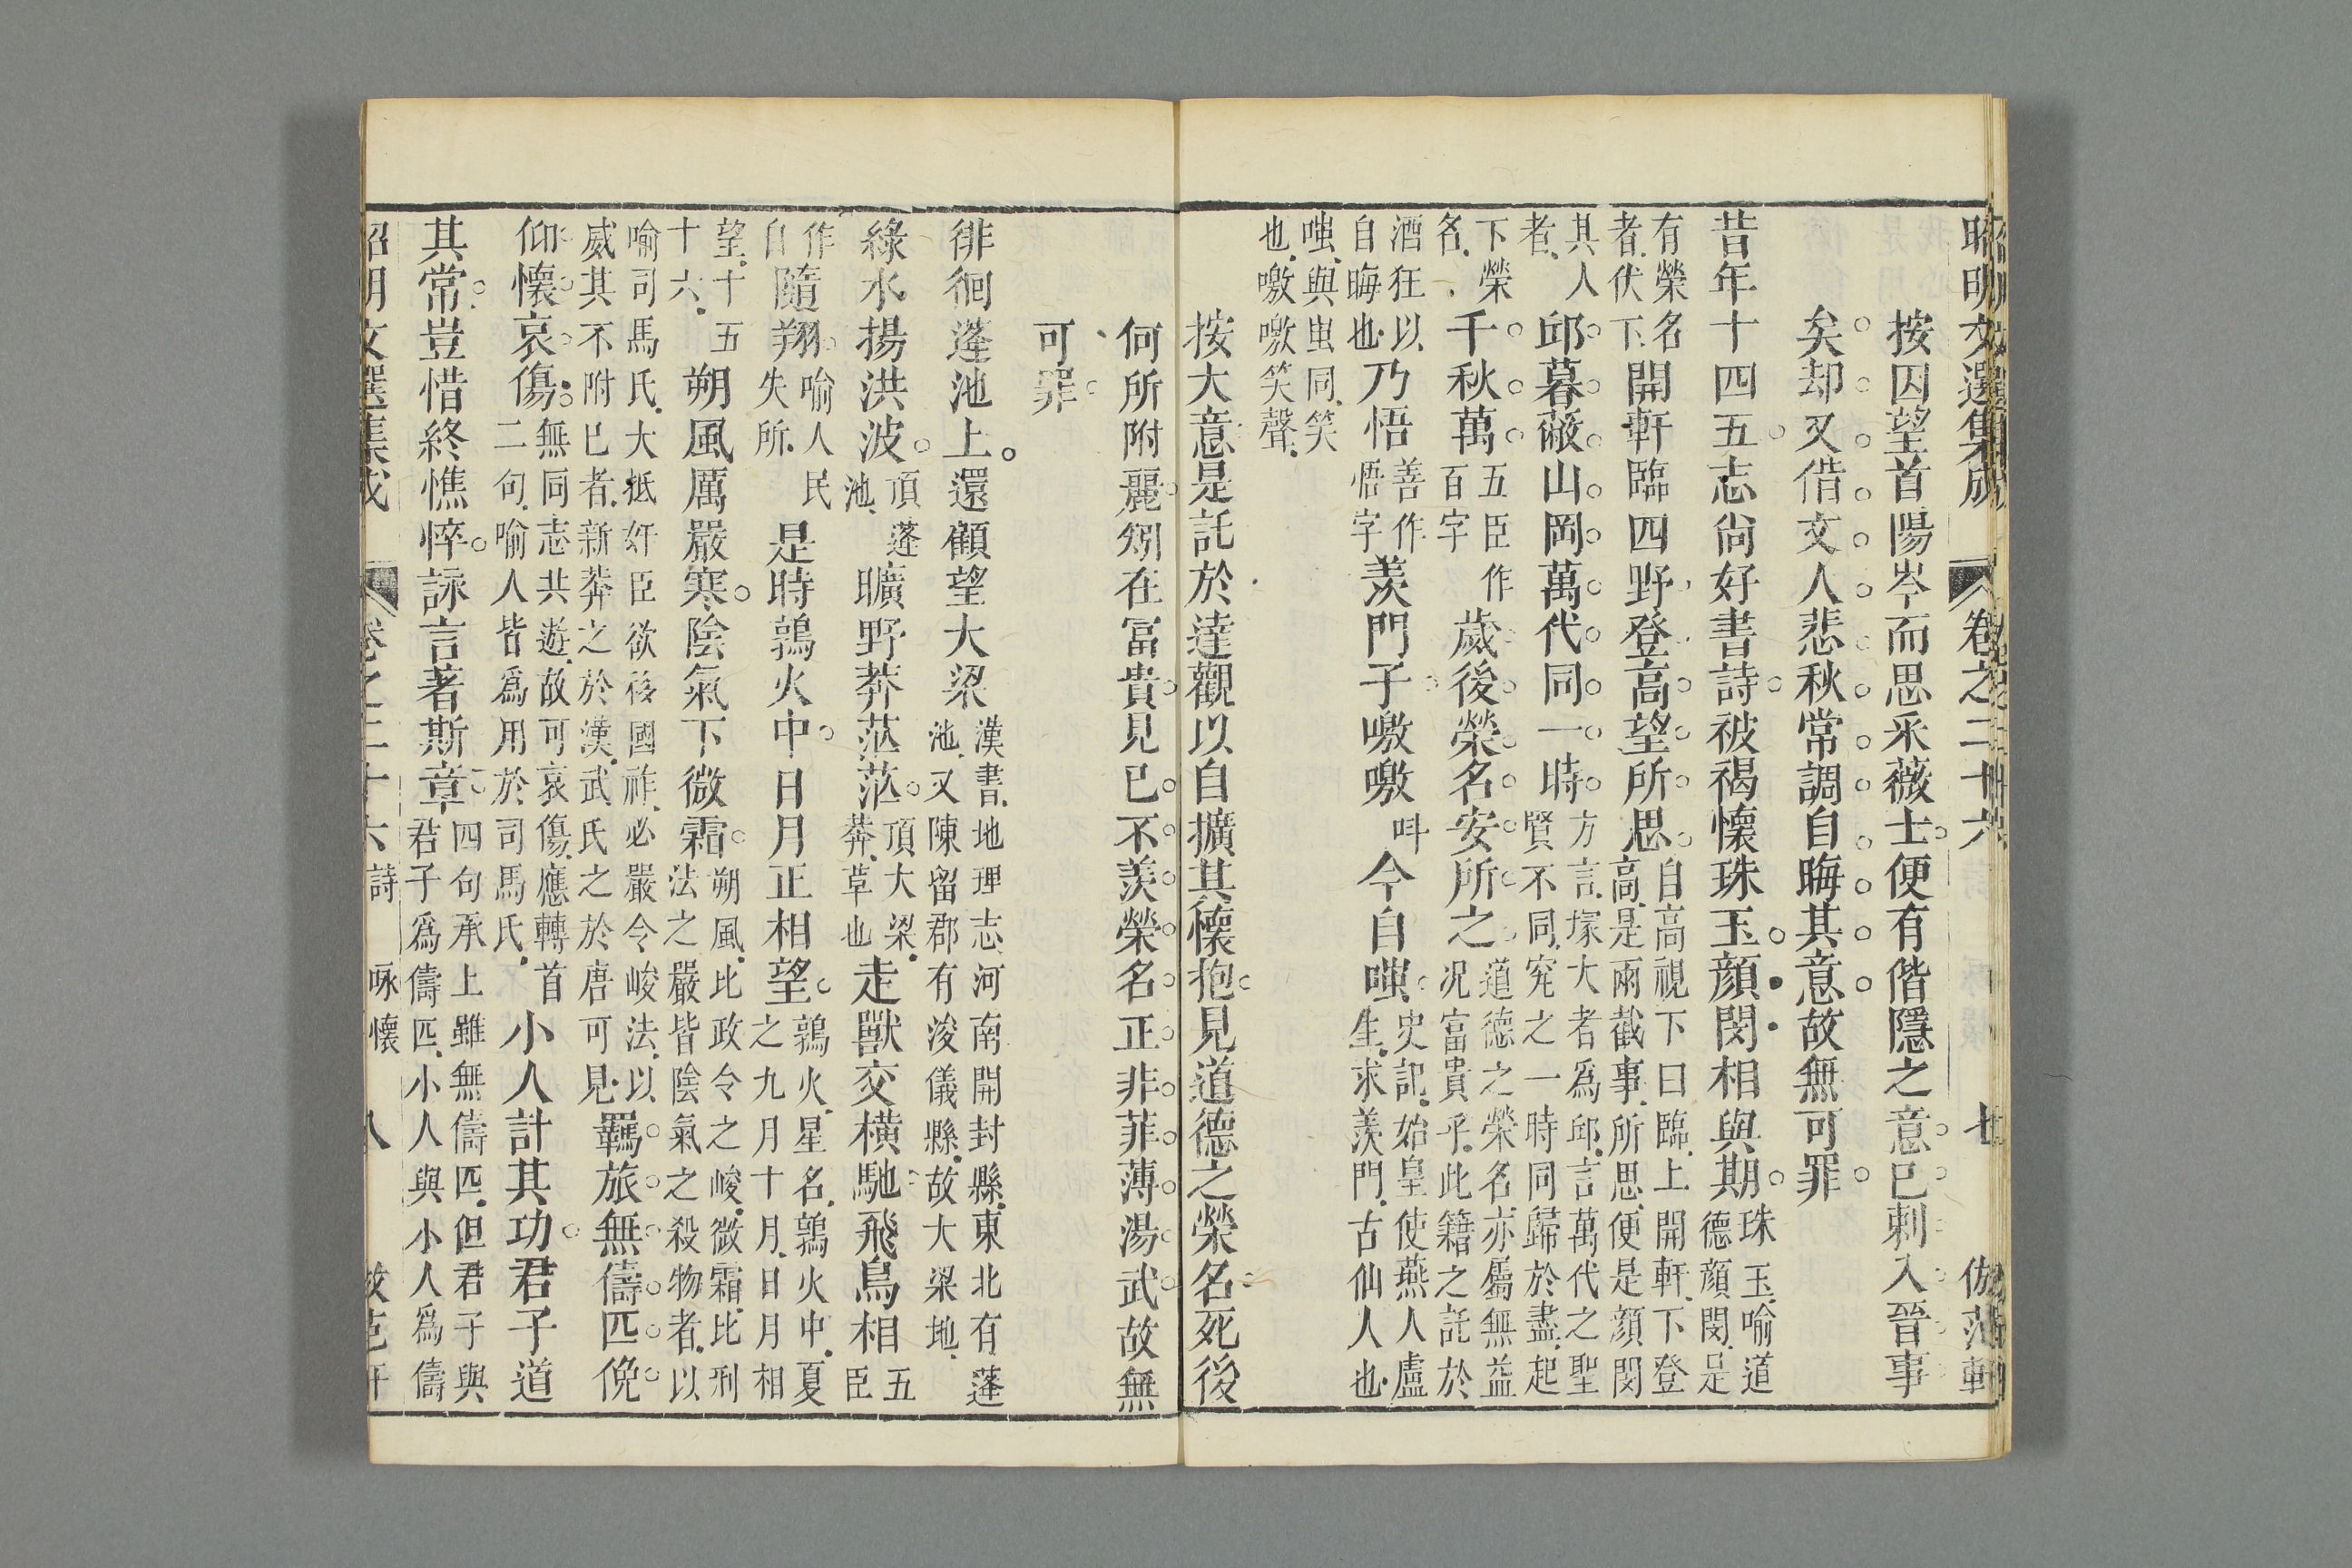 昭明文選集成　卷之二十六　七　倣范軒
按因望首陽岑而思采薇士便有偕隱之意已刺入晉事
矣却又借文人悲秋常調自晦其意故無可罪
昔年十四五志尙好書詩被褐懷珠玉顏閔相與期珠玉喻道德顏閔是
有榮名者伏下開軒臨四野登高望所思自高視下曰臨上開軒下登高是兩截事所思便是顏閔
其人者邱暮蔽山岡萬代同一時方言塚大者爲邱言萬代之聖賢不同究之一時同歸於盡起
下榮名千秋萬五臣作百字歲後榮名安所之道德之榮名亦屬無益况富貴乎此籍之託於
酒狂以自晦也乃悟善作悟字羨門子噭噭叫今自嗤史記始皇使燕人盧生求羨門古仙人也
嗤與蚩同笑也噭噭笑聲
按大意是託於達觀以自擴其懷抱見道德之榮名死後
何所附麗矧在冨貴見已不羨榮名正非菲薄湯武故無
可罪
徘徊蓬池上還顧望大梁漢書地理志河南開封縣東北有蓬池又陳留郡有浚儀縣故大梁地
綠水揚洪波頂蓬池曠野莽茫茫頂大梁莽草也走獸交橫馳飛鳥相五臣
作自隨翔喻人民失所是時鶉火中日月正相望鶉火星名鶉火中夏之九月十月日月相
望十五十六朔風厲嚴寒陰氣下微霜朔風比政令之峻微霜比刑法之嚴皆陰氣之殺物者以
喻司馬氏大抵奸臣欲移國祚必嚴令峻法以威其不附已者新莽之於漢武氏之於唐可見羈旅無儔匹俛
仰懷哀傷無同志共遊故可哀傷應轉首二句喻人皆爲用於司馬氏小人計其功君子道
其常豈惜終憔悴詠言著斯章四句承上雖無儔匹但君子與君子爲儔匹小人與小人爲儔
昭明文選集成　卷之二十六　詩　咏懷　八